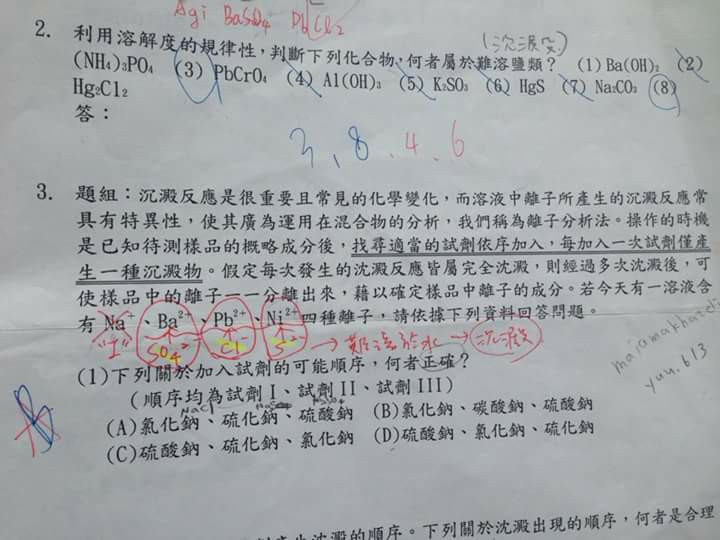 AgI BaSO4 PbCl2
(沉澱反)
2. 利用溶解度的規律性,判斷下列化合物,何者屬於難溶鹽類? (1) Ba(OH)₂ (2)
(NH₄)₃PO₄ (3) PbCrO₄ (4) Al(OH)₃ (5) K₂SO₃ (6) HgS (7) Na₂CO₃ (8)
Hg₂Cl₂
答:
3, 8. 4. 6
3. 題組:沉澱反應是很重要且常見的化學變化,而溶液中離子所產生的沉澱反應常
具有特異性,使其廣為運用在混合物的分析,我們稱為離子分析法。操作的時機
是已知待測樣品的概略成分後,找尋適當的試劑依序加入,每加入一次試劑僅產
生一種沉澱物。假定每次發生的沈澱反應皆屬完全沈澱,則經過多次沉澱後,可
使樣品中的離子一一分離出來,藉以確定樣品中離子的成分。若今天有一溶液含
有 Na⁺、Ba²⁺、Pb²⁺、Ni²⁺四種離子,請依據下列資料回答問題。
"1" SO4²⁻ Cl⁻ S²⁻ → 難溶於水 → 沉澱
(1)下列關於加入試劑的可能順序,何者正確?
(順序均為試劑 I、試劑 II、試劑 III)
NaCl
(A)氯化鈉、硫化鈉、硫酸鈉 (B)氯化鈉、碳酸鈉、硫酸鈉
(C)硫酸鈉、硫化鈉、氯化鈉 (D)硫酸鈉、氯化鈉、硫化鈉
yuu.613
沉澱的順序。下列關於沉澱出現的順序,何者是合理